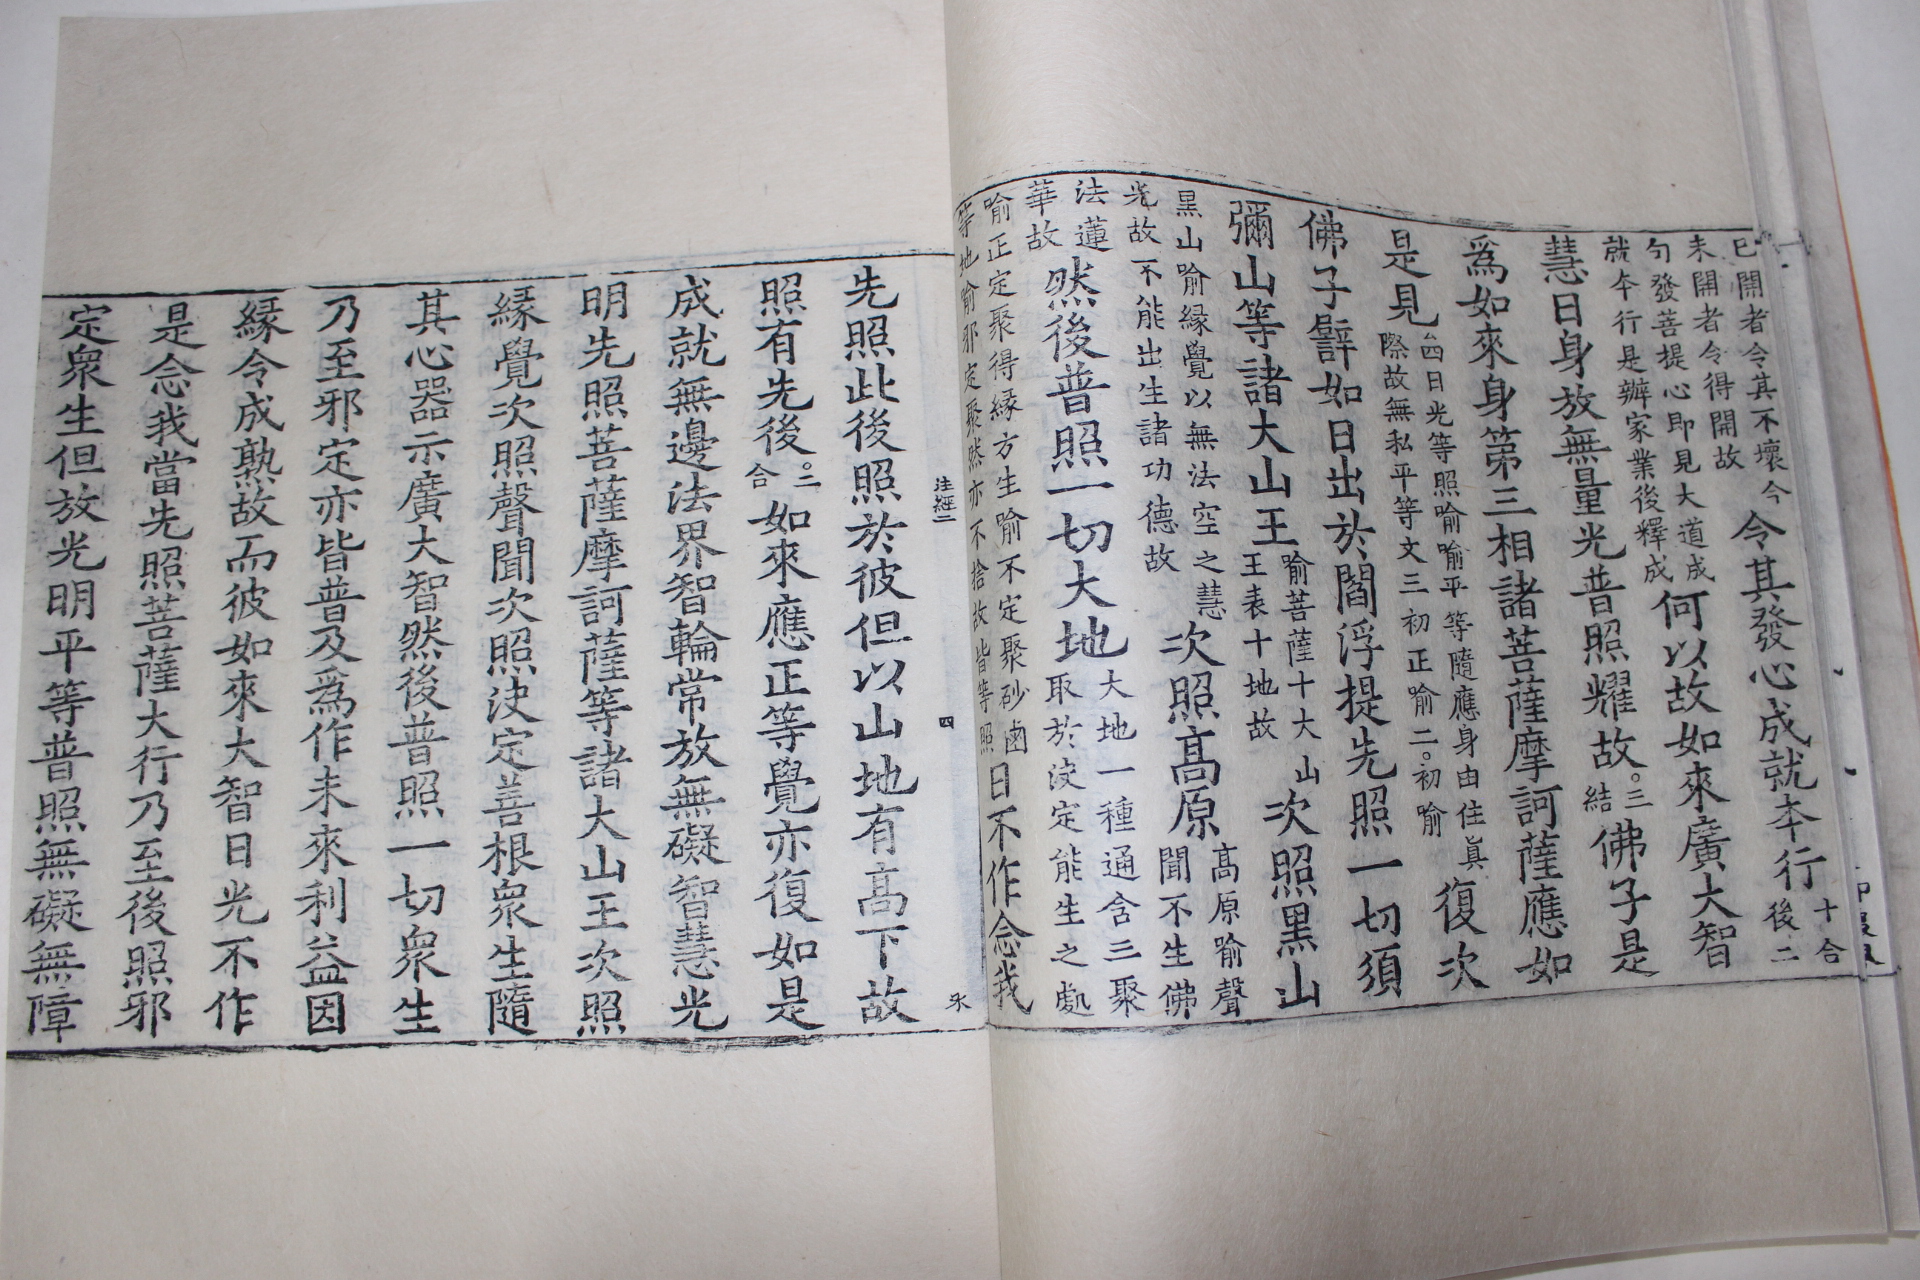 已開者令其不壞今
未開者令得開故
令其發心成就本行
十合
後二
句發菩提心即見大道成
就本行是辦家業後釋成
何以故如來廣大智
慧日身放無量光普照耀故
三
結
佛子是
為如來身第三相諸菩薩摩訶薩應如
是見
四日光等照喻喻平等隨應身由住真
際故無私平等文三初正喻二初喻
復次
佛子譬如日出於閻浮提先照一切須
彌山等諸大山王
喻菩薩十大山
王表十地故
次照黑山
黑山喻緣覺以無法空之慧
光故不能出生諸功德故
次照高原
高原喻聲
聞不生佛
法蓮
華故
然後普照一切大地
大地一種通含三聚
取於決定能生之處
喻正定聚得緣方生喻不定聚砂鹵
等地喻邪定聚然亦不捨故皆等照
日不作念我
注經二
四
先照此後照於彼但以山地有高下故
照有先後
二
合
如來應正等覺亦復如是
成就無邊法界智輪常放無礙智慧光
明先照菩薩摩訶薩等諸大山王次照
緣覺次照聲聞次照決定善根衆生隨
其心器示廣大智然後普照一切衆生
乃至邪定亦皆普及為作未來利益因
緣令成熟故而彼如來大智日光不作
是念我當先照菩薩大行乃至後照邪
定衆生但放光明平等普照無礙無障